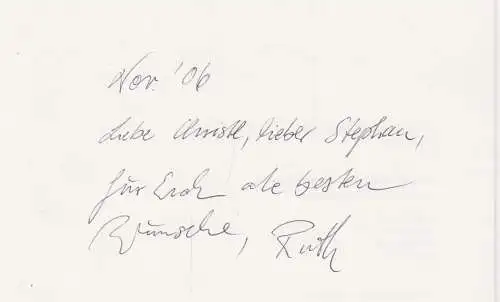 Nov. '06
Liebe Christl, lieber Stephan,
für Euch alle besten
Wünsche, Ruth